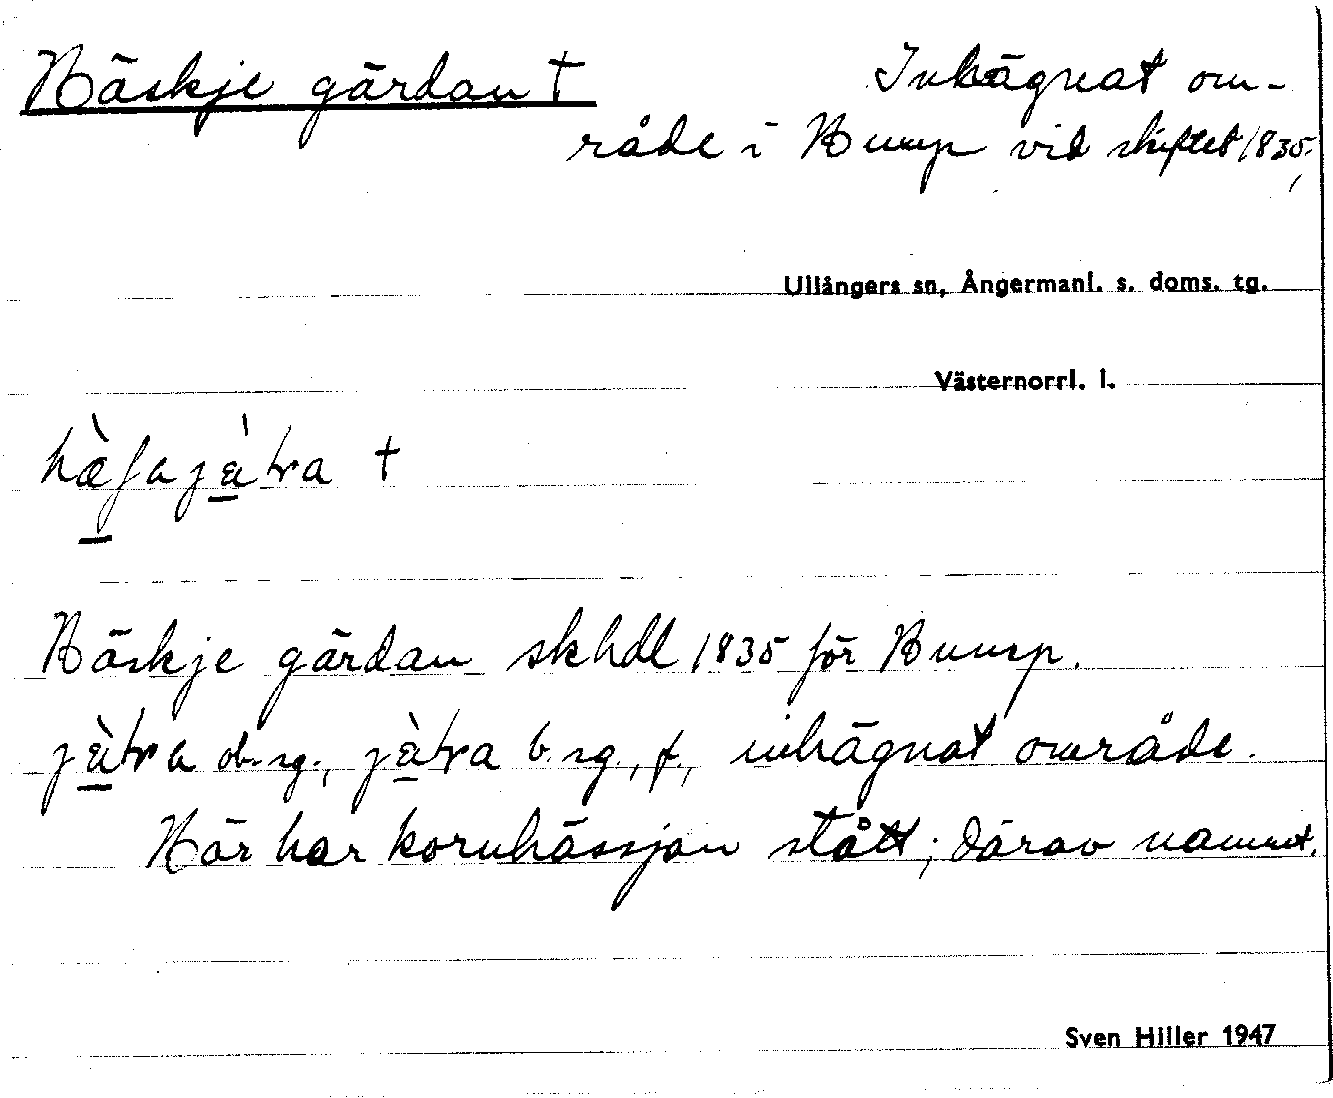 Häskje gärdan †
Inhägnat om-
råde i Hump vid skiftet 1835.
Ullångers sn, Ångermanl. s. doms. tg.
Västernorrl. l.
†
Häskje gärdan skhdl 1835 för Hump.
ob. sg., b. sg., f., inhägnat område.
Här har kornhässjan stått; därav namnet.
Sven Hiller 1947